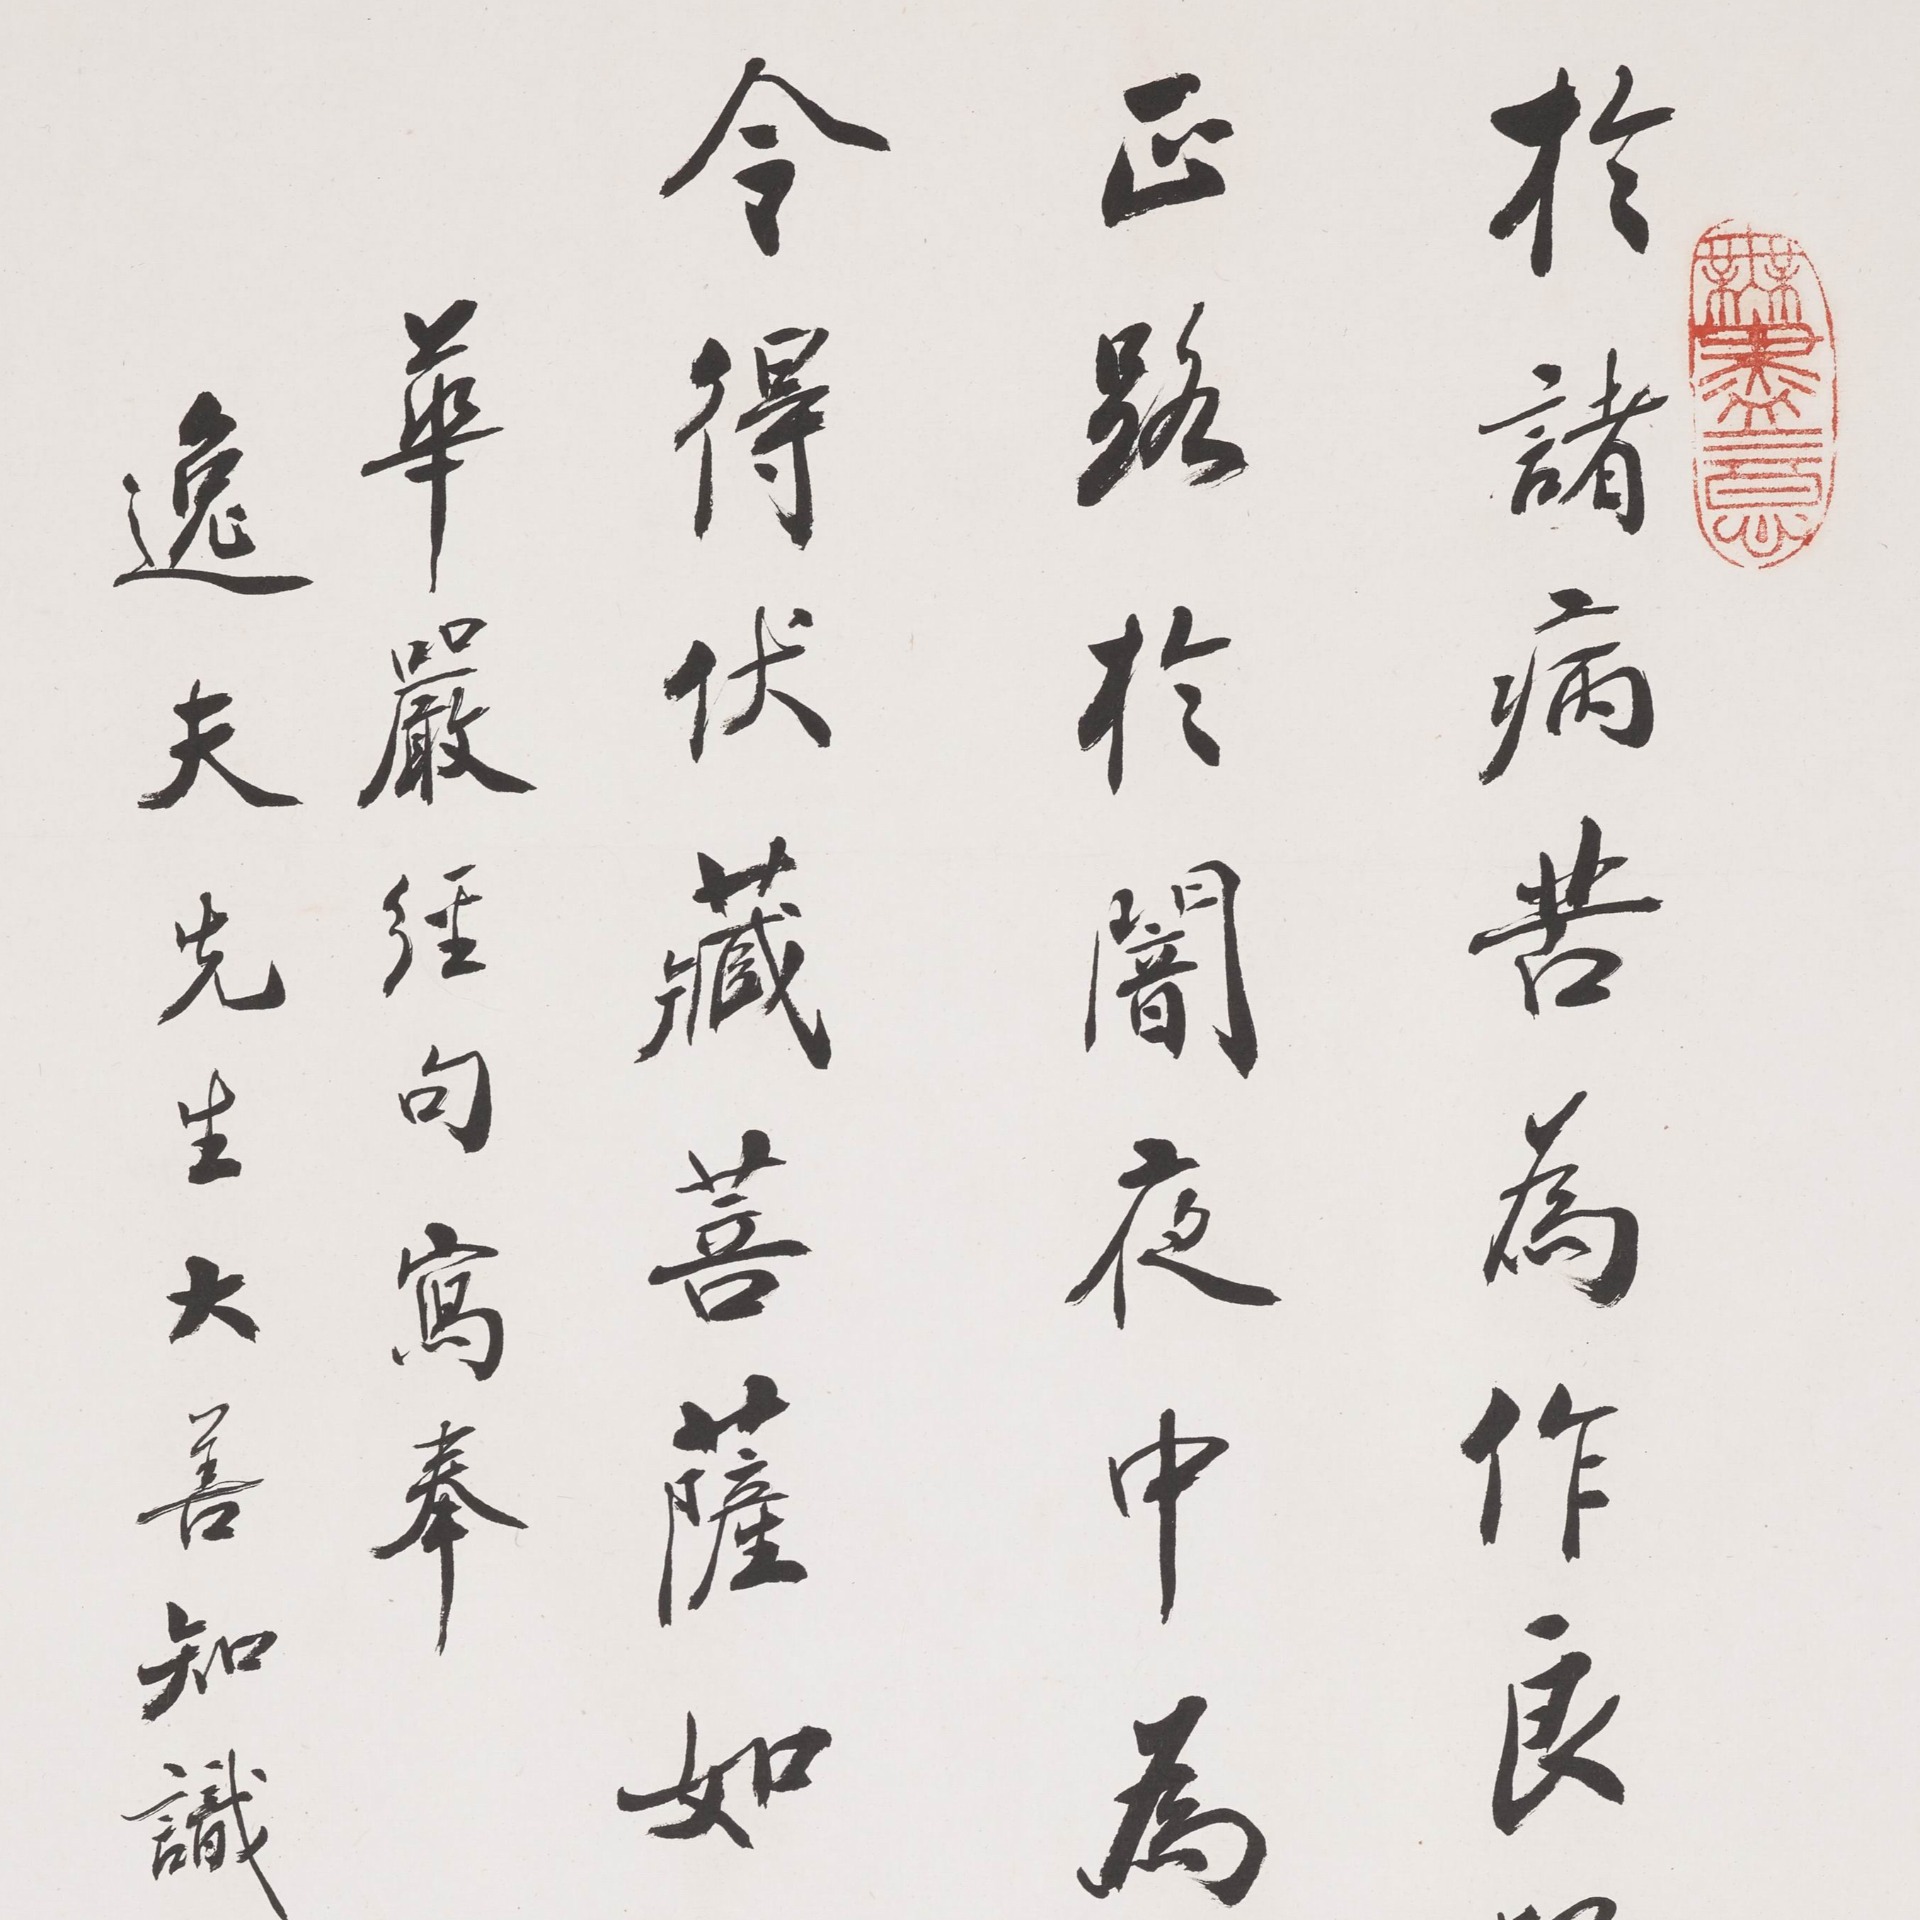 於諸病苦為作良
正路於闇夜中為
令得伏藏菩薩如
華嚴經句寫奉
逸夫先生大善知識
無盡意